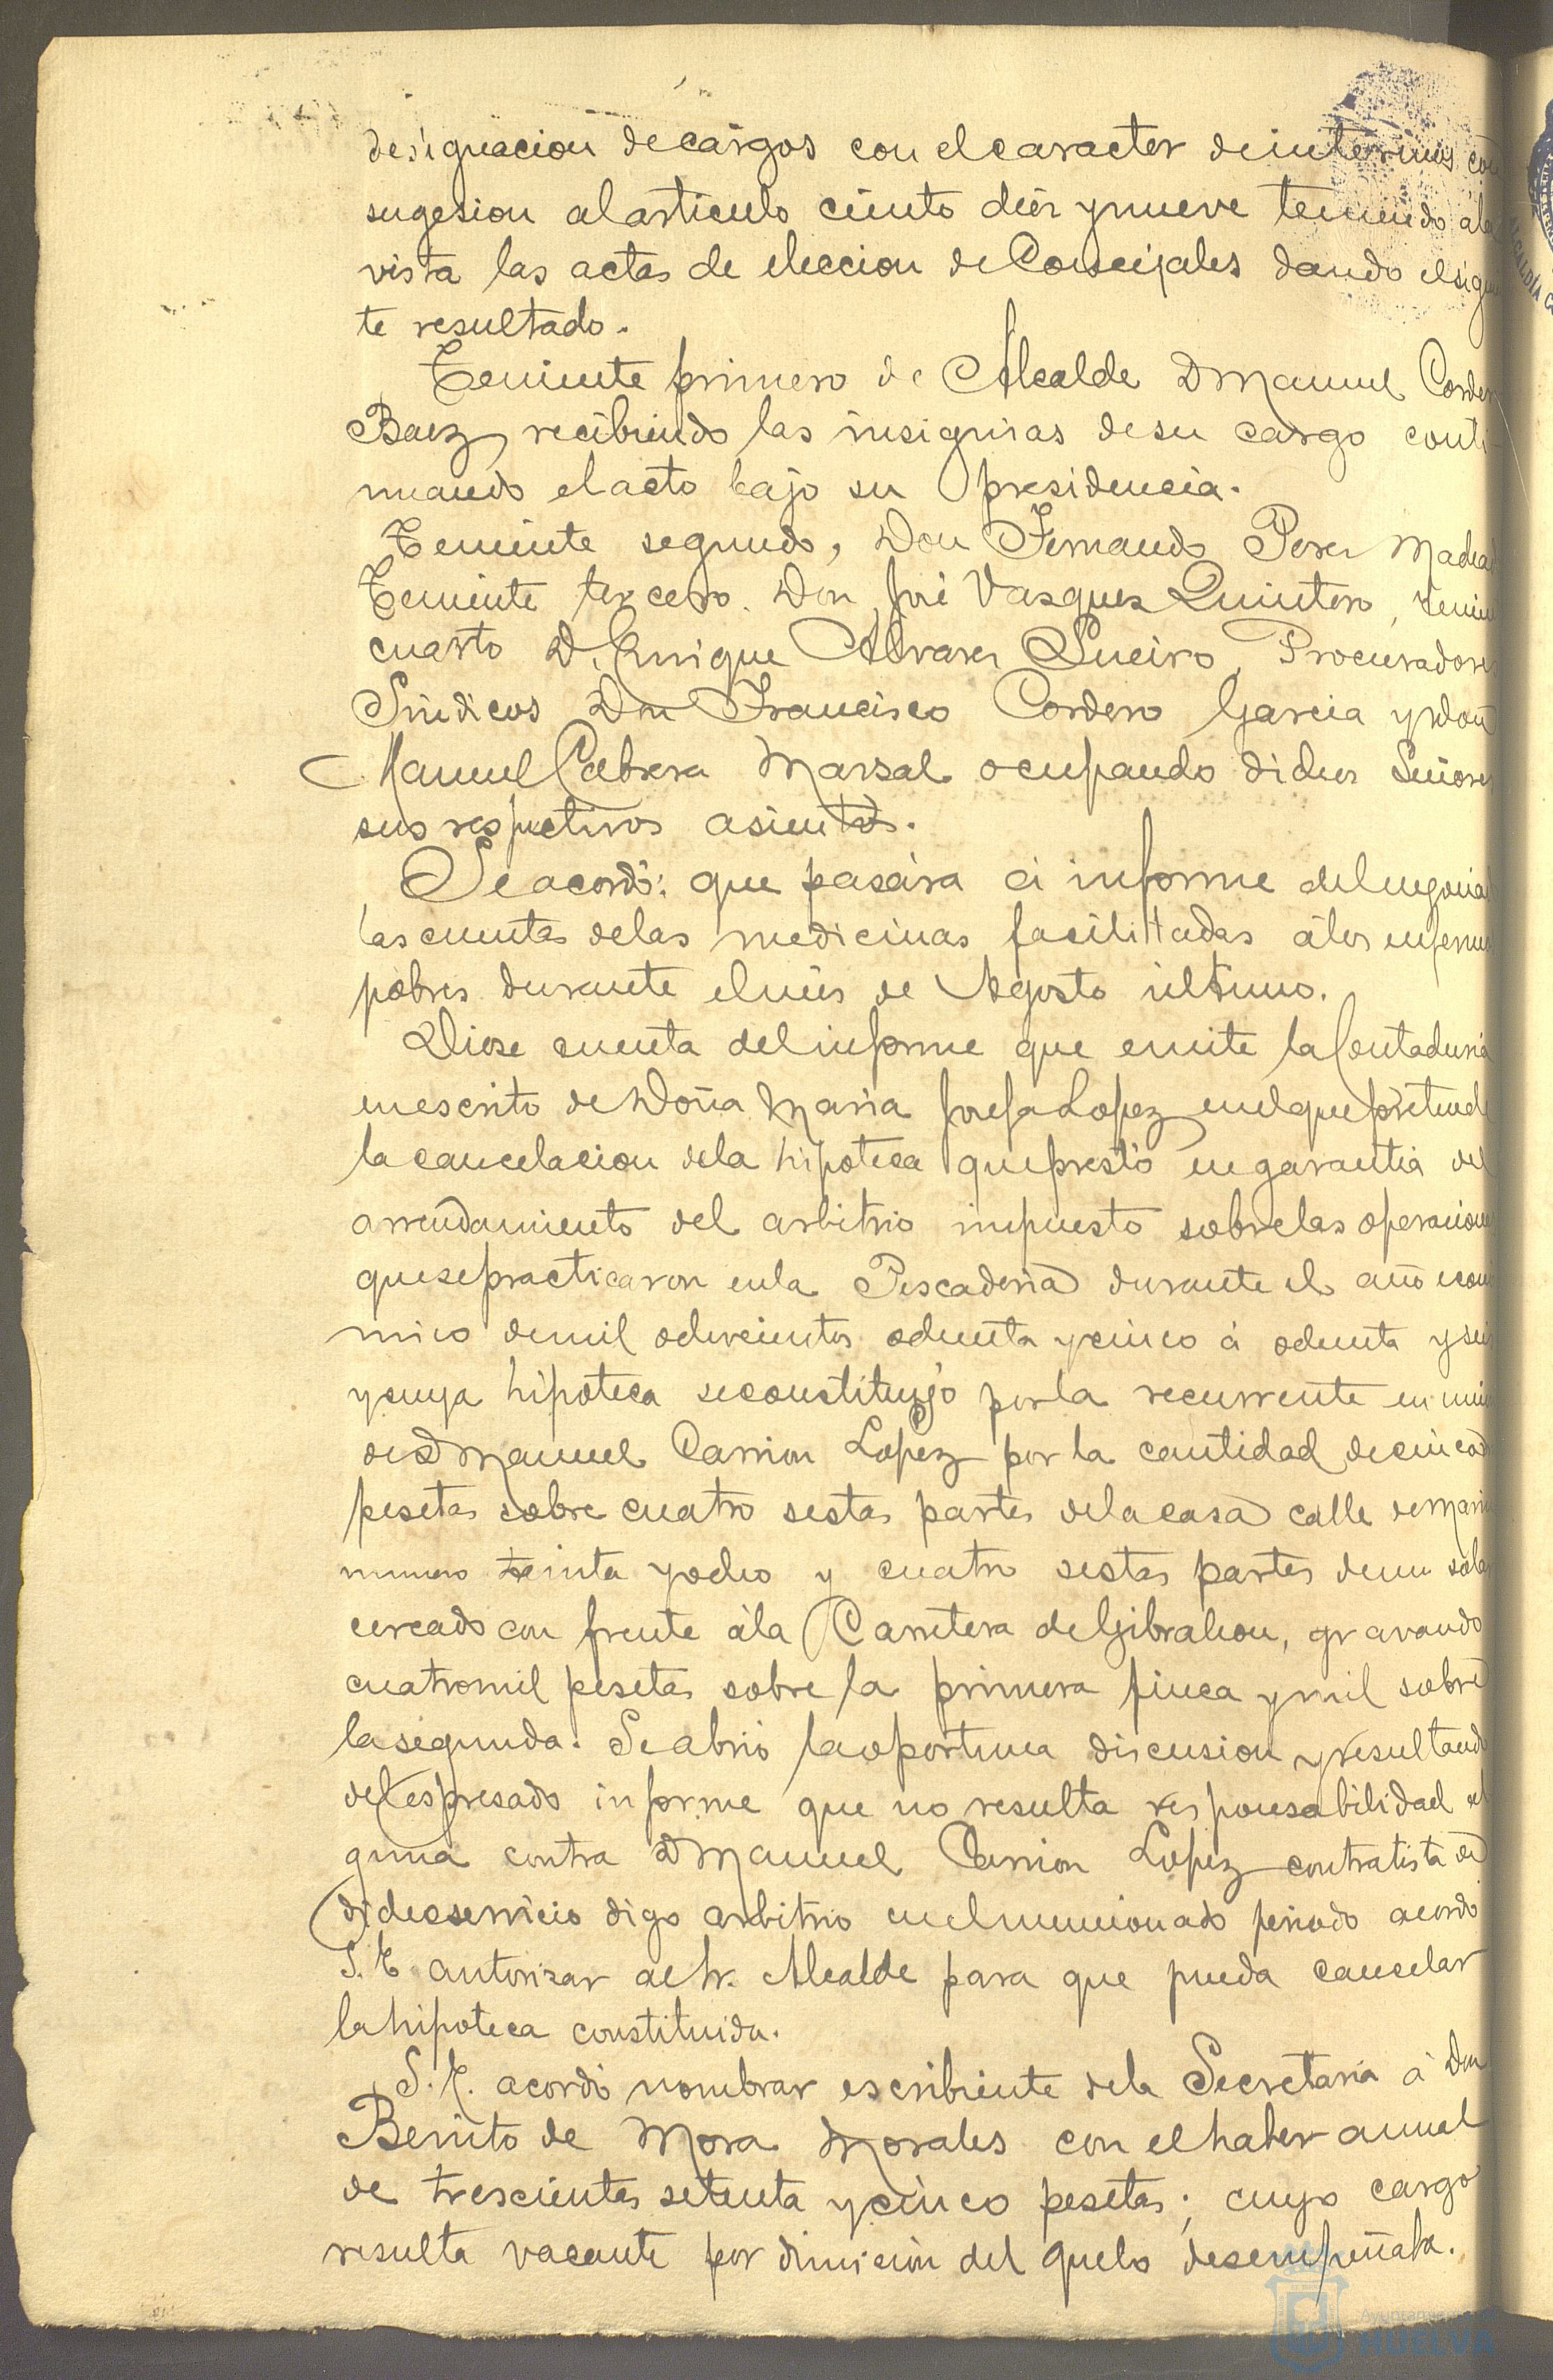 designacion de cargos con el caracter de interinos con
sugesion al articulo ciento diez y nueve teniendo a la
vista las actas de eleccion de Concejales dando el sigui
te resultado.
Teniente primero de Alcalde D Manuel Cordero
Baez, recibiendo las insignias de su cargo conti
nuando el acto bajo su presidencia.
Teniente segundo, Don Fernando Perez Madra
Teniente tercero. Don José Vasquez Quintero, Tenien
cuarto D. Enrique Alvarez Sueiro, Procuradores
Sindicos Don Francisco Cordero Garcia y Don
Manuel Cabrera Marsal ocupando dichos Señores
sus respectivos asientos.
Se acordó: que pasára á informe del negociad
las cuentas de las medicinas facilitadas á los enfermos
pobres durante el mes de Agosto último.
Diose cuenta del informe que emite la Contaduria
en escrito de Doña Maria Josefa Lopez en el que pretende
la cancelacion de la hipoteca que prestó en garantia del
arrendamiento del arbitrio impuesto sobre las operaciones
que se practicaron en la Pescaderia durante el año econo
mico de mil ochocientos ochenta y cinco á ochenta y seis
y cuya hipoteca se constituyó por la recurrente en union
de D Manuel Carrion Lopez por la cantidad de cinco
pesetas sobre cuatro sestas partes de la casa calle de Marin
numero treinta y ocho y cuatro sestas partes de un solar
cercado con frente á la Carretera de Gibraleon, gravando
cuatro mil pesetas sobre la primera finca y mil sobre
la segunda. Se abrió la oportuna discusion y resultando
del espresado informe que no resulta responsabilidad al
guna contra D Manuel Carrion Lopez contratista de
dicho servicio digo arbitrio en el mencionado periodo acordó
S. E. autorizar al Sr. Alcalde para que pueda cancelar
la hipoteca constituida.
S. E. acordó nombrar escribiente de la Secretaria á Don
Benito de Mora Morales con el haber anual
de trescientas setenta y cinco pesetas; cuyo cargo
resulta vacante por dimision del que lo desempeñaba.
Ayuntamiento
HUELVA